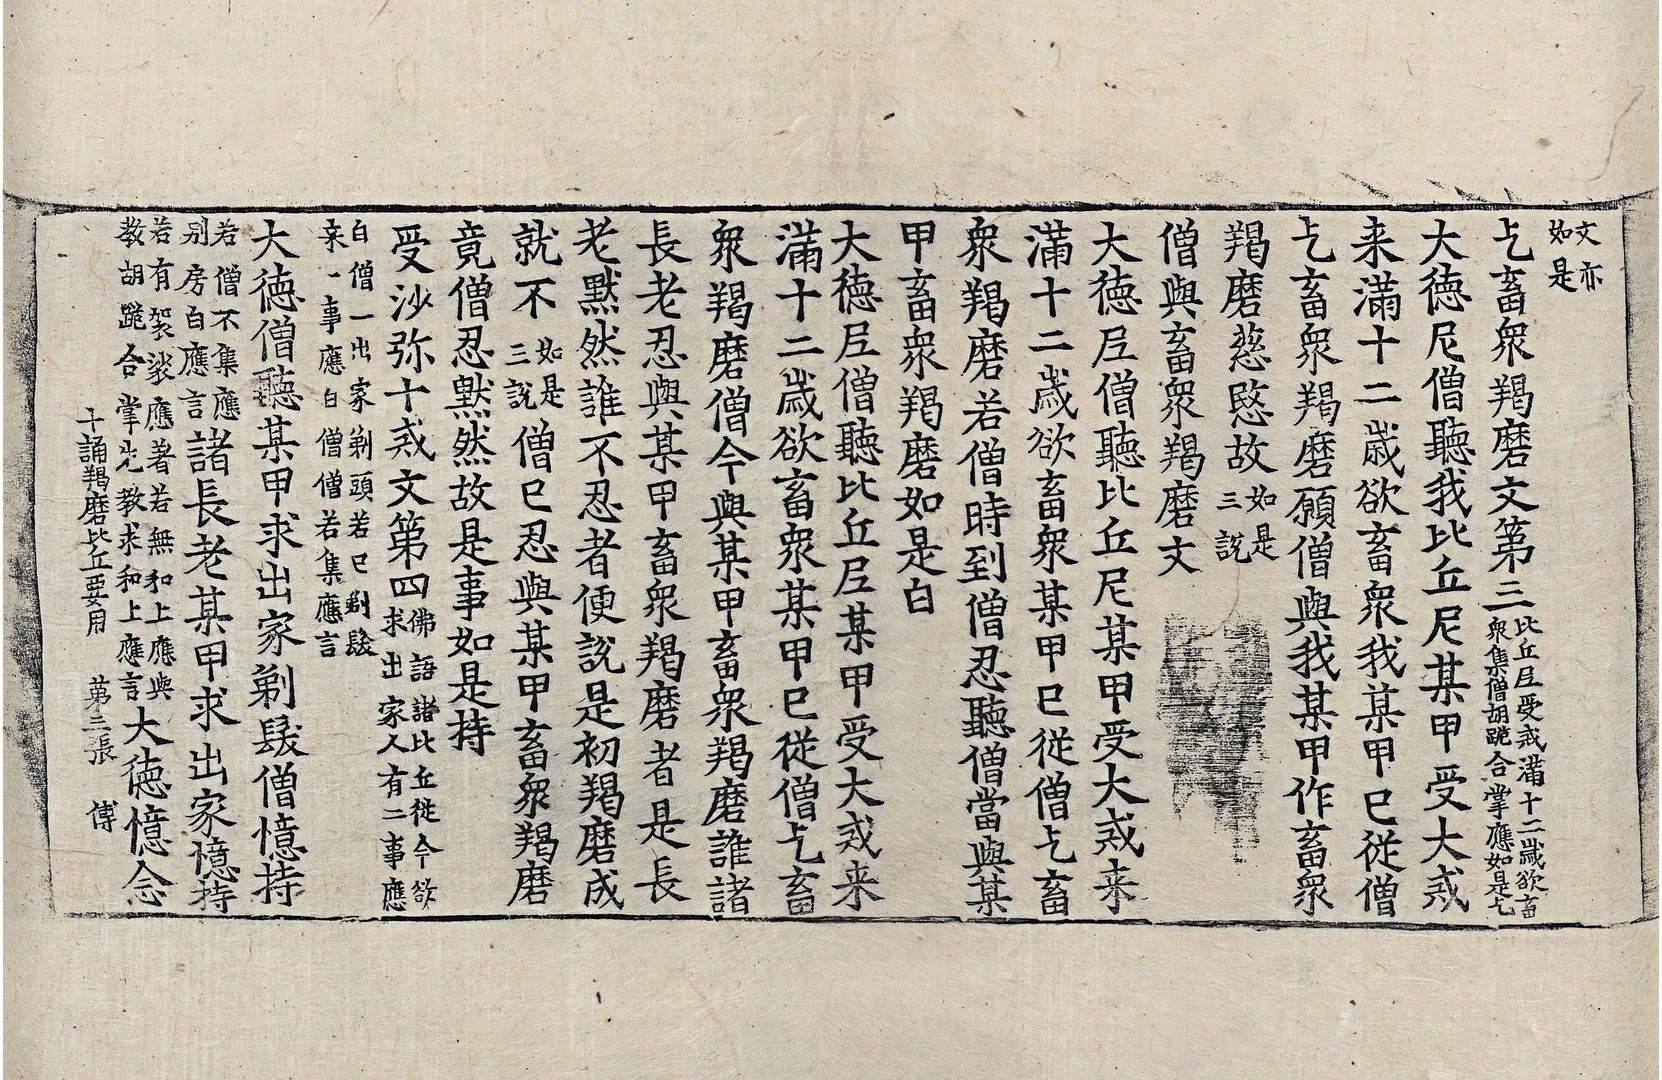 文亦如是
乞畜衆羯磨文第三比丘尼受戒滿十二歲欲畜衆集僧胡跪合掌應如是乞
大德尼僧聽我比丘尼某甲受大戒
来滿十二歲欲畜衆我某甲已從僧
乞畜衆羯磨願僧與我某甲作畜衆
羯磨慈愍故如是三說
僧與畜衆羯磨文
大德尼僧聽比丘尼某甲受大戒来
滿十二歲欲畜衆某甲已從僧乞畜
衆羯磨若僧時到僧忍聽僧當與某
甲畜衆羯磨如是白
大德尼僧聽比丘尼某甲受大戒来
滿十二歲欲畜衆某甲已從僧乞畜
衆羯磨僧今與某甲畜衆羯磨誰諸
長老忍與某甲畜衆羯磨者是長
老默然誰不忍者便說是初羯磨成
就不如是三說僧已忍與某甲畜衆羯磨
竟僧忍默然故是事如是持
受沙弥十戒文第四佛語諸比丘從今欲求出家人有二事應
白僧一出家剃頭若已剃髮来一事應白僧僧若集應言
大德僧聽某甲求出家剃髮僧憶持
若僧不集應別房白應言諸長老某甲求出家憶持
若有袈裟應著若無和上應與教胡跪合掌先教求和上應言大德憶念
十誦羯磨比丘要用 第三張 傅